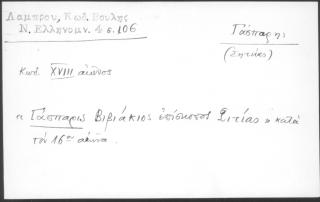 Λαμπρου, Κωδ. Βουλης
Ν. Ελληνομν. 4 σ. 106
Γάσπαρης
(Σητείας)
Κωδ. XVIII αἰῶνος
Γάσπαρις Βιβιάκιος ἐπίσκοπος Σιτίας κατὰ
τὸν 16ον αἰῶνα.